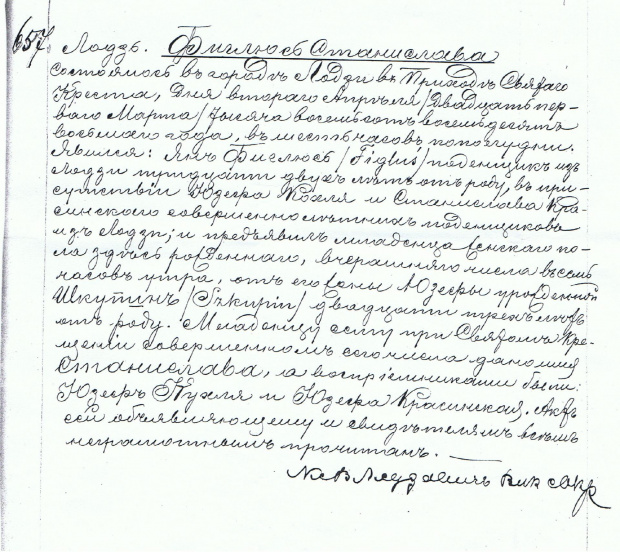 657.
Лодзь. Фиглюсъ Станислава
состоялось въ городѣ Лодзи въ Приходѣ Святаго
Креста, Дня втораго Апрѣля /Двадцать пер-
ваго Марта/ Тысяча восемьсотъ восемьдесятъ
восьмаго года, въ шесть часовъ пополудни.
Явился: Янъ Фиглюсъ /Figlus/ поденщикъ изъ
Лодзи тридцати двухъ лѣтъ отъ роду, въ при-
сутствіи Юзефа и Станислава Кра-
синскаго совершеннолѣтнихъ поденщиковъ
изъ Лодзи; и предъявилъ младенца женскаго по-
ла здѣсь рожденнаго, вчерашняго числа въ семь
часовъ утра, отъ его жены Юзефы урожденной
/двадцати трехъ лѣтъ
отъ роду. Младенцу сему при Святомъ Кре-
щеніи совершенномъ сего числа дано имя
Станислава, а воспріемниками были:
Юзефъ и Юзефа Красинская. Актъ
сей объявляющему и свидѣтелямъ всѣмъ
неграмотнымъ прочитанъ.